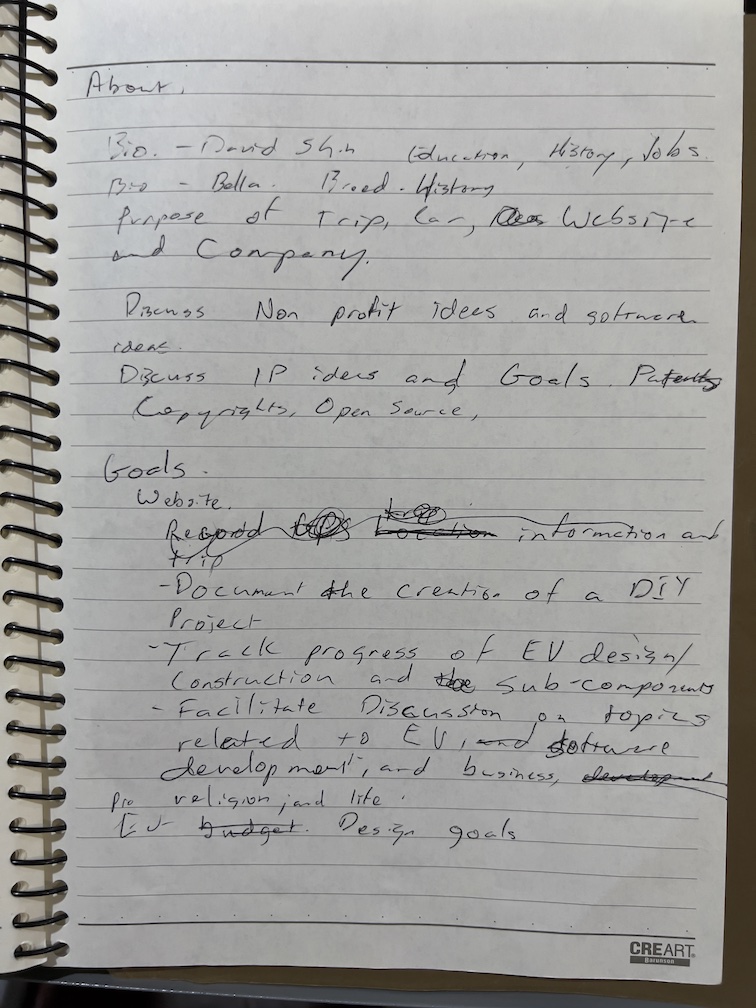 About.
Bio. - David Shin Education, History, Jobs.
Bio - Bella. Breed. History
Purpose of Trip, Car, Website
and Company.
Discuss Non profit ideas and software
ideas.
Discuss IP ideas and Goals. Patents
Copyrights, Open Source,
Goals.
Website.
Record trip information and
trip
- Document the creation of a DIY
Project
- Track progress of EV design/
Construction and the Sub-components
- Facilitate Discussion on topics
related to EV, and software
development, and business, development
religion, and life.
budget. Design goals
CREART
Barunson